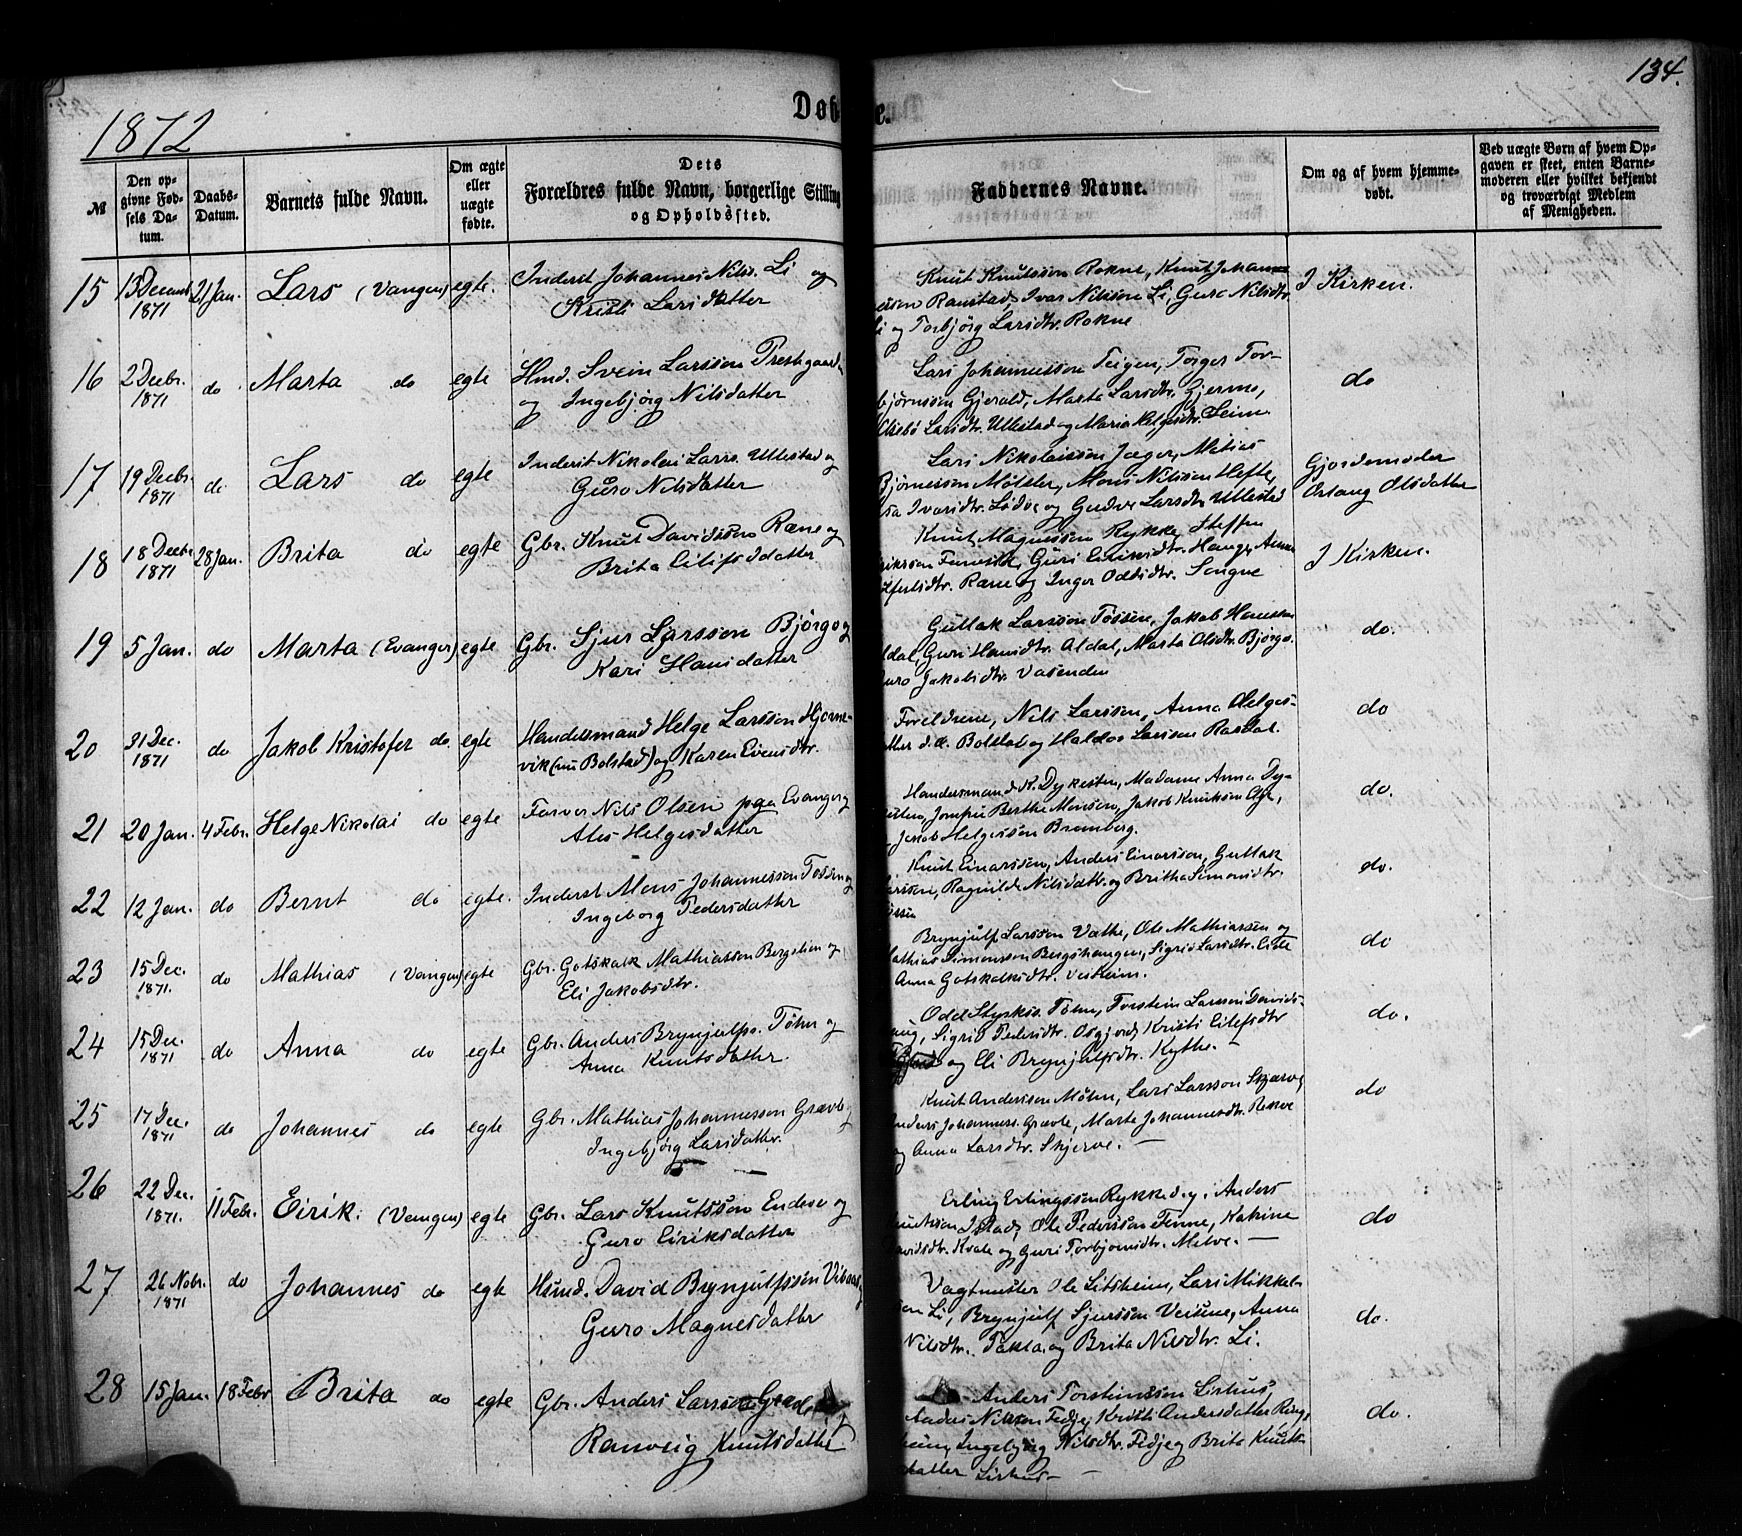 134.
1872
Døb e.
№
Den op-
givne Fød-
sels Da-
tum.
Daabs-
Datum.
Barnets fulde Navn.
Om ægte
eller
uægte
fødte.
Dets
Forældres fulde Navn, borgerlige Stilling
og Opholdssted.
Faddernes Navne.
Om og af hvem hjemme-
døbt.
Ved uægte Børn af hvem Op-
gaven er skeet, enten Barne-
moderen eller hvilket bekjendt
og troværdigt Medlem
af Menigheden.
15 13 Decemb 1871 21 Jan. Lars (Vangen) egte.
Inderst Johannes Nils. Li og
Kristi Larsdatter
Knut Knutsson Rokne, Knut Johann-
essen Ranstad, Ivar Nilsson Li, Guro Nilsdtr.
Li og Torbjørg Larsdtr. Rokne
I Kirken.
16 2 Decbr. 1871 do Marta do egte
Hmd. Svein Larsson Prestegaard
og Ingebjørg Nilsdatter
Lars Johannesson Teigen, Torger Tor-
bjørnssen Gjerald, Marta Larsdtr. Gjerme,
Larsdtr. Ullestad og Maria Helgesdtr. Seim
do
17 19 Decbr. 1871 do Lars do egte
Inderst Nikolai Larss. Ullestad og
Guro Nilsdatter
Lars Nikolaisson Jæger, Matias
Bjørnesson Mølster, Mons Nilsson Hefte,
Ivarsdtr. Lødve og Gudve Larsdtr. Ullestad
Gjordemoder
Olsdatter
18 18 Decbr 1871 28 Jan. Brita do egte
Gbr. Knut Davidsson Ræne og
Brita Eilifsdatter
Knut Magnesson Rykke, Steffen
Guri Eiriksdtr. Hauge, Anna
Ræne og Inger Oddsdtr. Songve
I Kirken.
19 5 Jan. do Marta (Evanger) egte
Gbr. Sjur Larsson Bjørgo og
Kari Hansdatter
Gullak Larsson Tøssen, Jakob Hansson
Aldal, Guri Hansdtr. Aldal, Marta Olsdtr. Bjørgo.
Guro Jakobsdtr. Vasenden
do.
20 31 Dec. 1871 do Jakob Kristofer do. egte
Handelsmand Helge Larsson Hjorne-
vik (nu Bolstad) og Karen Evensdtr.
Foreldrene, Nils Larsson, Anna Helges-
datter d.æ. Bolstad og Haldor Larsson Rasdal.
do
21 20 Jan. 4 Febr. Helge Nikolai do egte
Farver Nils Olsen pga Evanger og
Ales Helgesdatter
Handelsmand K. Dykesten, Madame Anna Dy-
kesten, Jomfru Berthe Monsen, Jakob Knutsson
Jakob Helgesson Bromberg.
do.
22 12 Jan. do Bernt do egte.
Inderst Mons Johannesson Tøssen og
Ingeborg Pedersdatter
Knut Einarsson, Anders Einarsson, Gullak
Larssen, Ragnilde Nilsdatr. og Britha Simonsdtr.
Tøssen
do.
23 15 Dec. 1871. do Mathias (Vangen) egte
Gbr. Gotskalk Mathiasson Bergslien og
Eli Jakobsdtr.
Brynjulf Larsson Væthe, Ole Mathiassen og
Mathias Simonsson Bergshaugen, Sigrid Larsdtr.
Anna Gotskalksdtr. Veiheim.
do
24 15 Dec. 1871 do Anna do egte
Gbr. Anders Brynjulfss. Tøhn og
Anna Knutsdatter.
Odd Styrkss. Tøhn, Torstein Larsson Davids-
haug, Sigrid Pedersdtr. Osgjord, Kristi Eilefsdtr
og Eli Brynjulfsdtr. Kythe.
do.
25 17 Dec. 1871 do Johannes do egte
Gbr. Mathias Johannesson Grævle og
Ingebjørg Larsdatter.
Knut Andersson Møhn, Lars Larsson Skjerve,
Anders Johanness. Grævle, Marte Johannesdtr. Rekve
og Anna Larsdtr. Skjerve.
do
26 22 Dec. 1871. 11 Febr. Eirik. (Vangen) egte
Gbr. Lars Knutsson Endeve og
Guro Eiriksdatter
Erling Erlingsson Rykke d.y. Anders
Knutsson Istad, Ole Pedersson Finne, Katrine
Davidsdtr. Kvale og Guri Torbjornsdtr. Melve.
do
27 26 Nobr. 1871 do Johannes do egte
Hsmd. David Brynjulfsson
Guro Magnesdatter
Vagtmester Ole Litsheim, Lars Mikkel-
son Li, Brynjulf Sjursson Anna
Nilsdtr. Takla, og Brita Nilsdtr. Li.
do.
28 15 Jan. 18 Febr Brita do egte
Gbr. Anders Larsson
Ranveig Knutsdatter
Anders Torsteinsson Lirhus,
Anders Nilsson Fedje, Kristi Andersdatter Rings-
heim, Ingebjørg Nilsdtr. Fedje og Brita Knuts-
datter Lirhus
do.